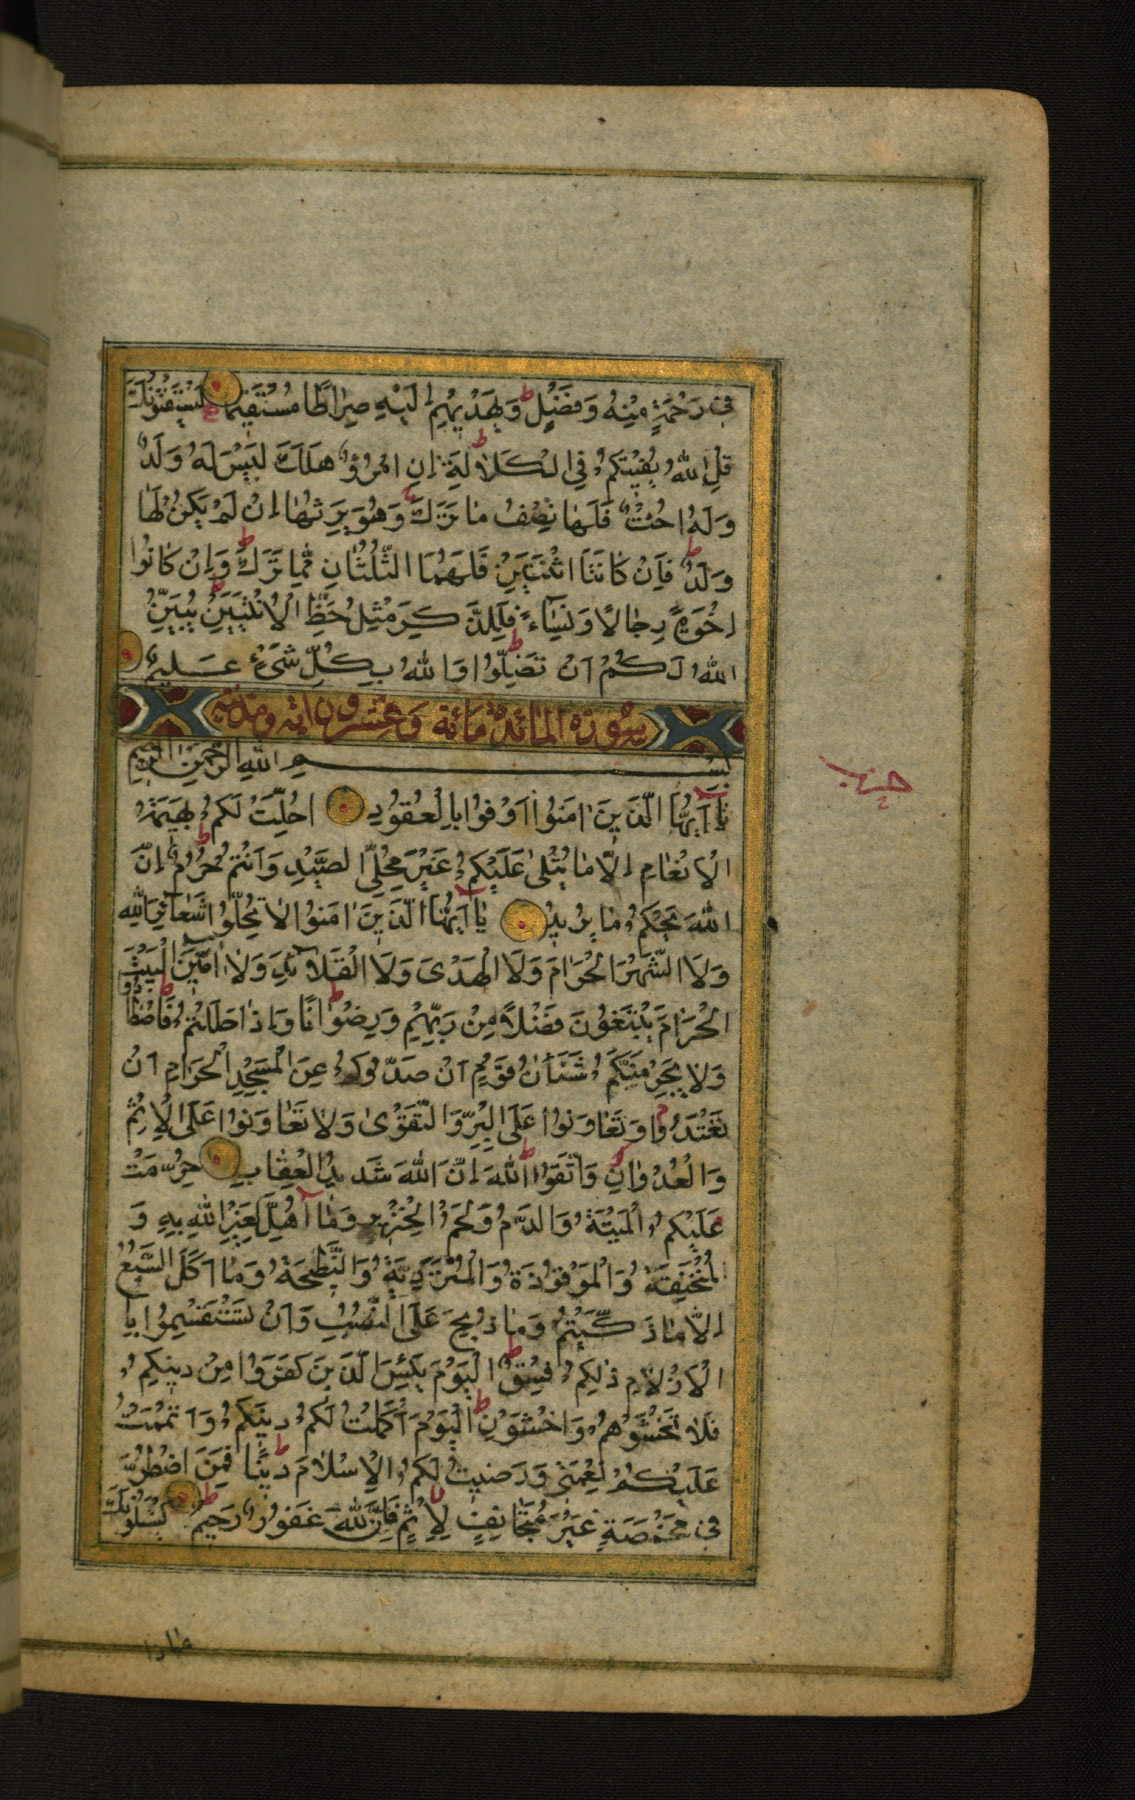 فِى رَحْمَةٍ مِنْهُ وَفَضْلٍ وَيَهْدِيهِمْ اِلَيْهِ صِرَاطًا مُسْتَقِيمًا يَسْتَفْتُونَكَ
قُلِ اللّٰهُ يُفْتِيكُمْ فِى الْكَلَالَةِ اِنِ امْرُؤٌ هَلَكَ لَيْسَ لَهُ وَلَدٌ
وَلَهُ اُخْتٌ فَلَهَا نِصْفُ مَا تَرَكَ وَهُوَ يَرِثُهَا اِنْ لَمْ يَكُنْ لَهَا
وَلَدٌ فَاِنْ كَانَتَا اثْنَتَيْنِ فَلَهُمَا الثُّلُثَانِ مِمَّا تَرَكَ وَاِنْ كَانُوا
اِخْوَةً رِجَالًا وَنِسَاءً فَلِلذَّكَرِ مِثْلُ حَظِّ الْاُنْثَيَيْنِ يُبَيِّنُ
اللّٰهُ لَكُمْ اَنْ تَضِلُّوا وَاللّٰهُ بِكُلِّ شَىْءٍ عَلِيمٌ
سورة المائدة مائة وعشرون اية ومدنية
بسم الله الرحمن الرحيم
يَا اَيُّهَا الَّذِينَ اٰمَنُوا اَوْفُوا بِالْعُقُودِ اُحِلَّتْ لَكُمْ بَهِيمَةُ
الْاَنْعَامِ اِلَّا مَا يُتْلٰى عَلَيْكُمْ غَيْرَ مُحِلِّى الصَّيْدِ وَاَنْتُمْ حُرُمٌ اِنَّ
اللّٰهَ يَحْكُمُ مَا يُرِيدُ يَا اَيُّهَا الَّذِينَ اٰمَنُوا لَا تُحِلُّوا شَعَائِرَ اللّٰهِ
وَلَا الشَّهْرَ الْحَرَامَ وَلَا الْهَدْىَ وَلَا الْقَلَائِدَ وَلَا اٰمِّينَ الْبَيْتَ
الْحَرَامَ يَبْتَغُونَ فَضْلًا مِنْ رَبِّهِمْ وَرِضْوَانًا وَاِذَا حَلَلْتُمْ فَاصْطَادُوا
وَلَا يَجْرِمَنَّكُمْ شَنَاٰنُ قَوْمٍ اَنْ صَدُّوكُمْ عَنِ الْمَسْجِدِ الْحَرَامِ اَنْ
تَعْتَدُوا وَتَعَاوَنُوا عَلَى الْبِرِّ وَالتَّقْوٰى وَلَا تَعَاوَنُوا عَلَى الْاِثْمِ
وَالْعُدْوَانِ وَاتَّقُوا اللّٰهَ اِنَّ اللّٰهَ شَدِيدُ الْعِقَابِ حُرِّمَتْ
عَلَيْكُمُ الْمَيْتَةُ وَالدَّمُ وَلَحْمُ الْخِنْزِيرِ وَمَا اُهِلَّ لِغَيْرِ اللّٰهِ بِهِ وَ
الْمُنْخَنِقَةُ وَالْمَوْقُوذَةُ وَالْمُتَرَدِّيَةُ وَالنَّطِيحَةُ وَمَا اَكَلَ السَّبُعُ
اِلَّا مَا ذَكَّيْتُمْ وَمَا ذُبِحَ عَلَى النُّصُبِ وَاَنْ تَسْتَقْسِمُوا بِا
الْاَزْلَامِ ذٰلِكُمْ فِسْقٌ الْيَوْمَ يَئِسَ الَّذِينَ كَفَرُوا مِنْ دِينِكُمْ
فَلَا تَخْشَوْهُمْ وَاخْشَوْنِ الْيَوْمَ اَكْمَلْتُ لَكُمْ دِينَكُمْ وَاَتْمَمْتُ
عَلَيْكُمْ نِعْمَتِى وَرَضِيتُ لَكُمُ الْاِسْلَامَ دِينًا فَمَنِ اضْطُرَّ
فِى مَخْمَصَةٍ غَيْرَ مُتَجَانِفٍ لِاِثْمٍ فَاِنَّ اللّٰهَ غَفُورٌ رَحِيمٌ يَسْئَلُونَكَ
حزب
ماذا